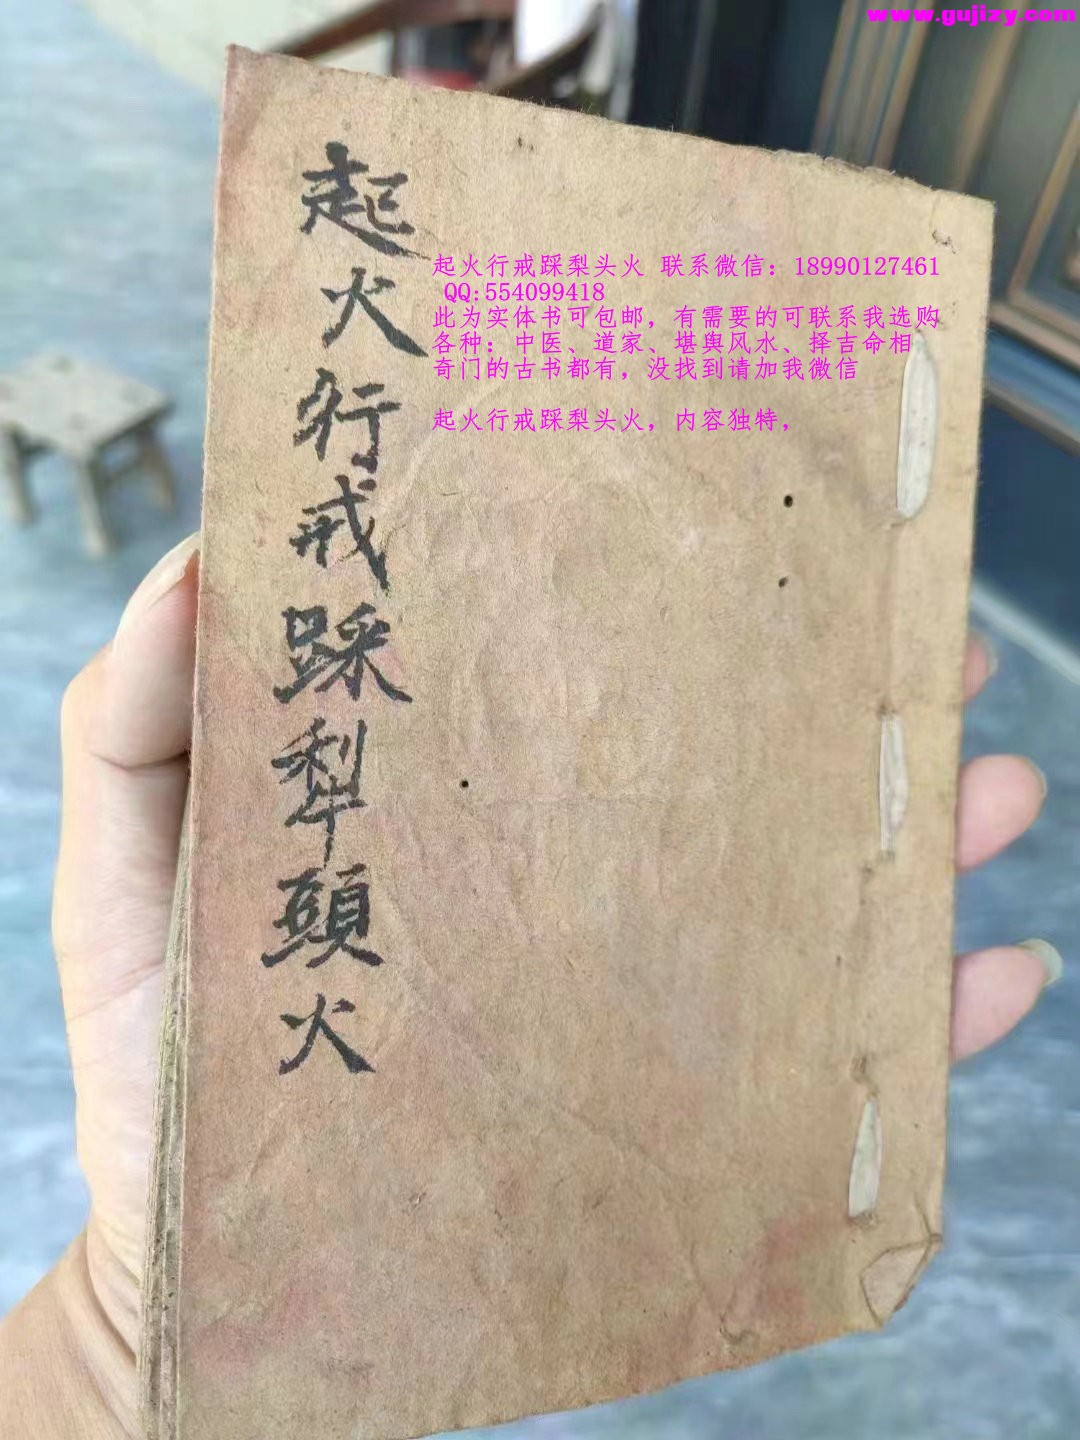 www.gujizy.com
起火行戒踩犁頭火
起火行戒踩梨头火 联系微信：18990127461
QQ:554099418
此为实体书可包邮，有需要的可联系我选购
各种：中医、道家、堪舆风水、择吉命相
奇门的古书都有，没找到请加我微信
起火行戒踩梨头火，内容独特，